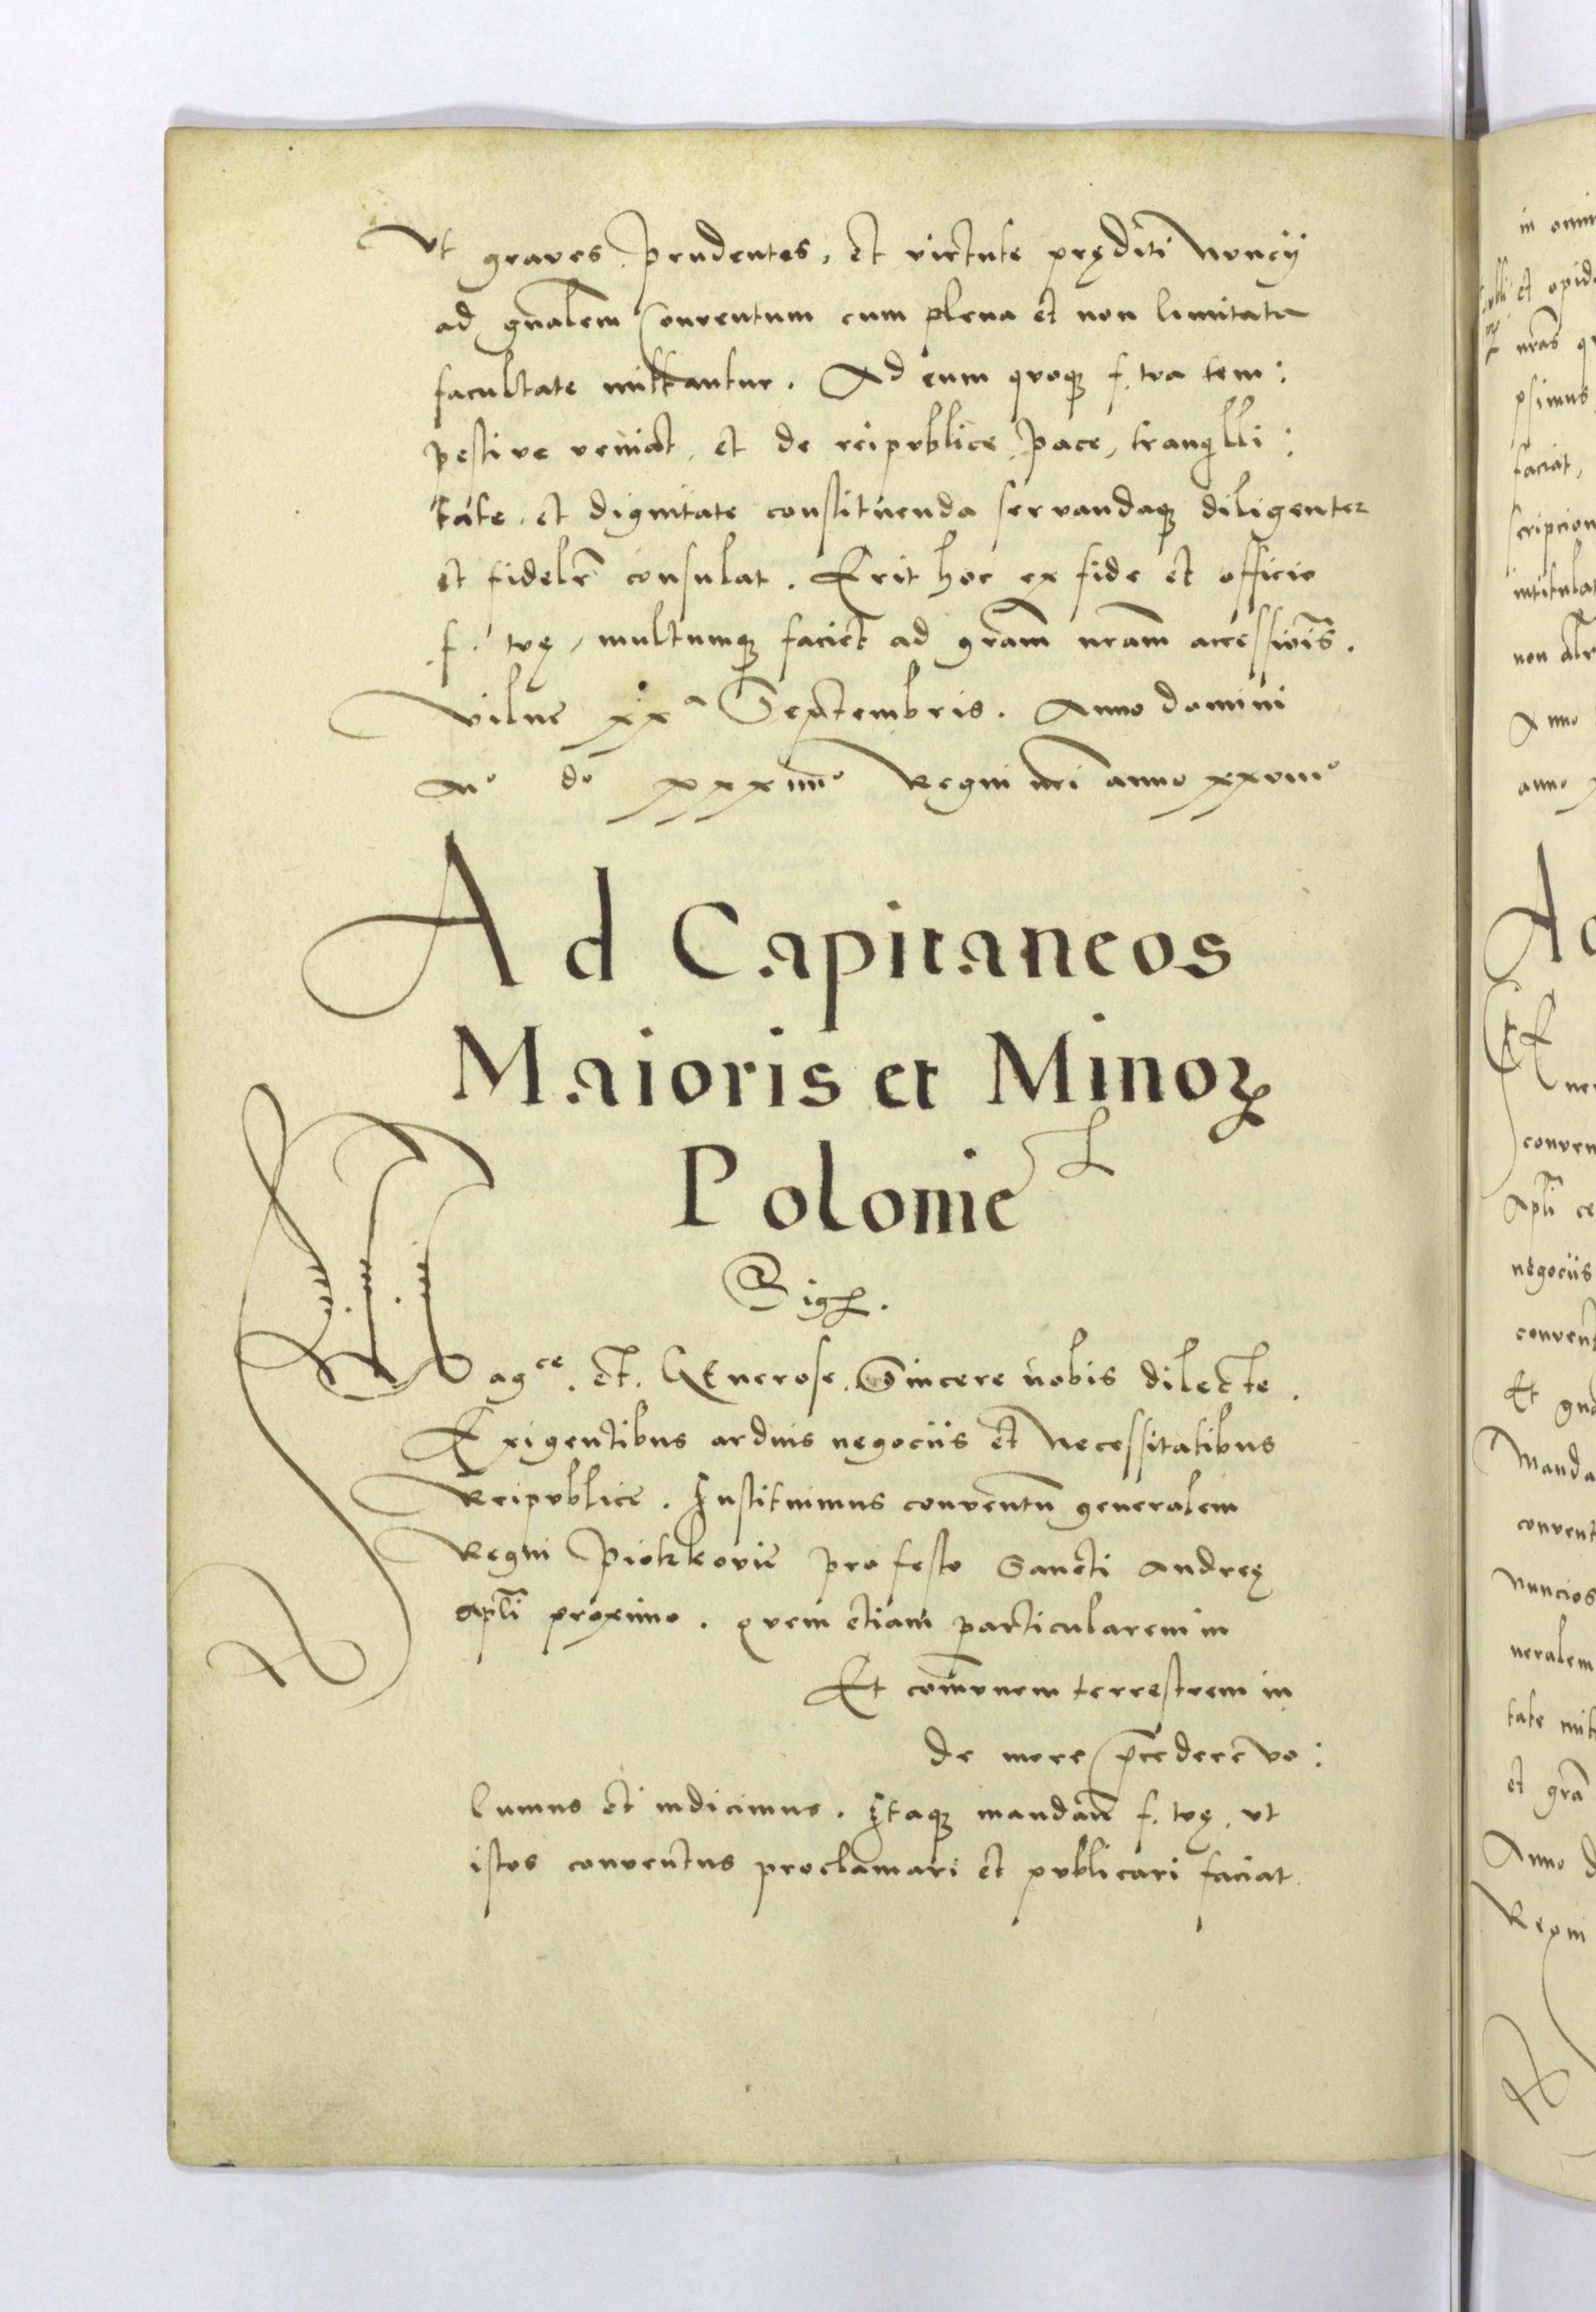 Vt graves, prudentes, et virtute pręditi Nuncij
ad gn̄alem Conventum cum plena et non limitata
facultate mittantur. Ad eum quoqꝫ f. tua tem:
pestive veniat, et de reipublice pace, tranq̇lli:
tate, et dignitate constituenda servandaqꝫ diligenter
et fidelr̄ consulat. Erit hoc ex fide et officio
f. tuę, multumqꝫ faciet ad gr̄am nr̄am accessiōis.
Vilnę xxᵃ Septembris. Anno domini
Mº dº xxxiiiiº Regni nr̄i anno xxviiiº
Ad Capitaneos
Maioris et Minoꝝ
Polonie
Sigꝭ.
Magᶜᵉ. et. GEnerose, Sincere nobis dilecte.
Exigentibus arduis negociis et Necessitatibus
Reipublice. Instituimus conventū generalem
Regni Piotrkovie pro festo Sancti Andreę
apl̄i proximo. quem etiam particularem in
Et com̄unem terrestrem in
de more p̄cedere vo:
lumus et indicimus. Itaqꝫ mandam̄ f. tuę, vt
istos conventus proclamari et publicari faciat
in
et
nr̄as
faciat,
non
Anno
anno
Ad
apl̄i
negociis
Et
Manda
convent
Nuncios
neralem
tate
et gr̄a
Anno d
Regni